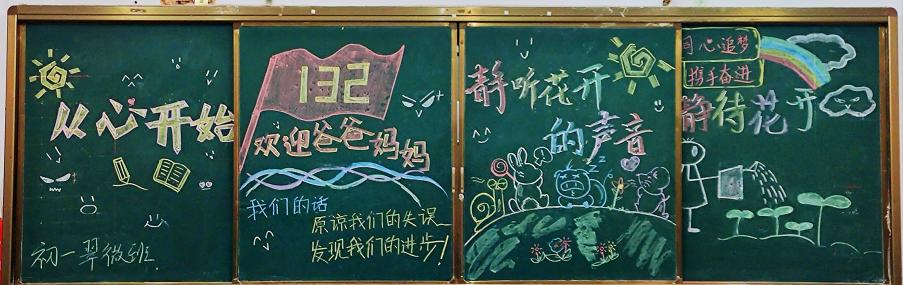 从心开始
初一翠微班
132
欢迎爸爸妈妈
我们的话
原谅我们的失误
发现我们的进步!
静听花开
的声音
同心追梦
携手奋进
静待花开